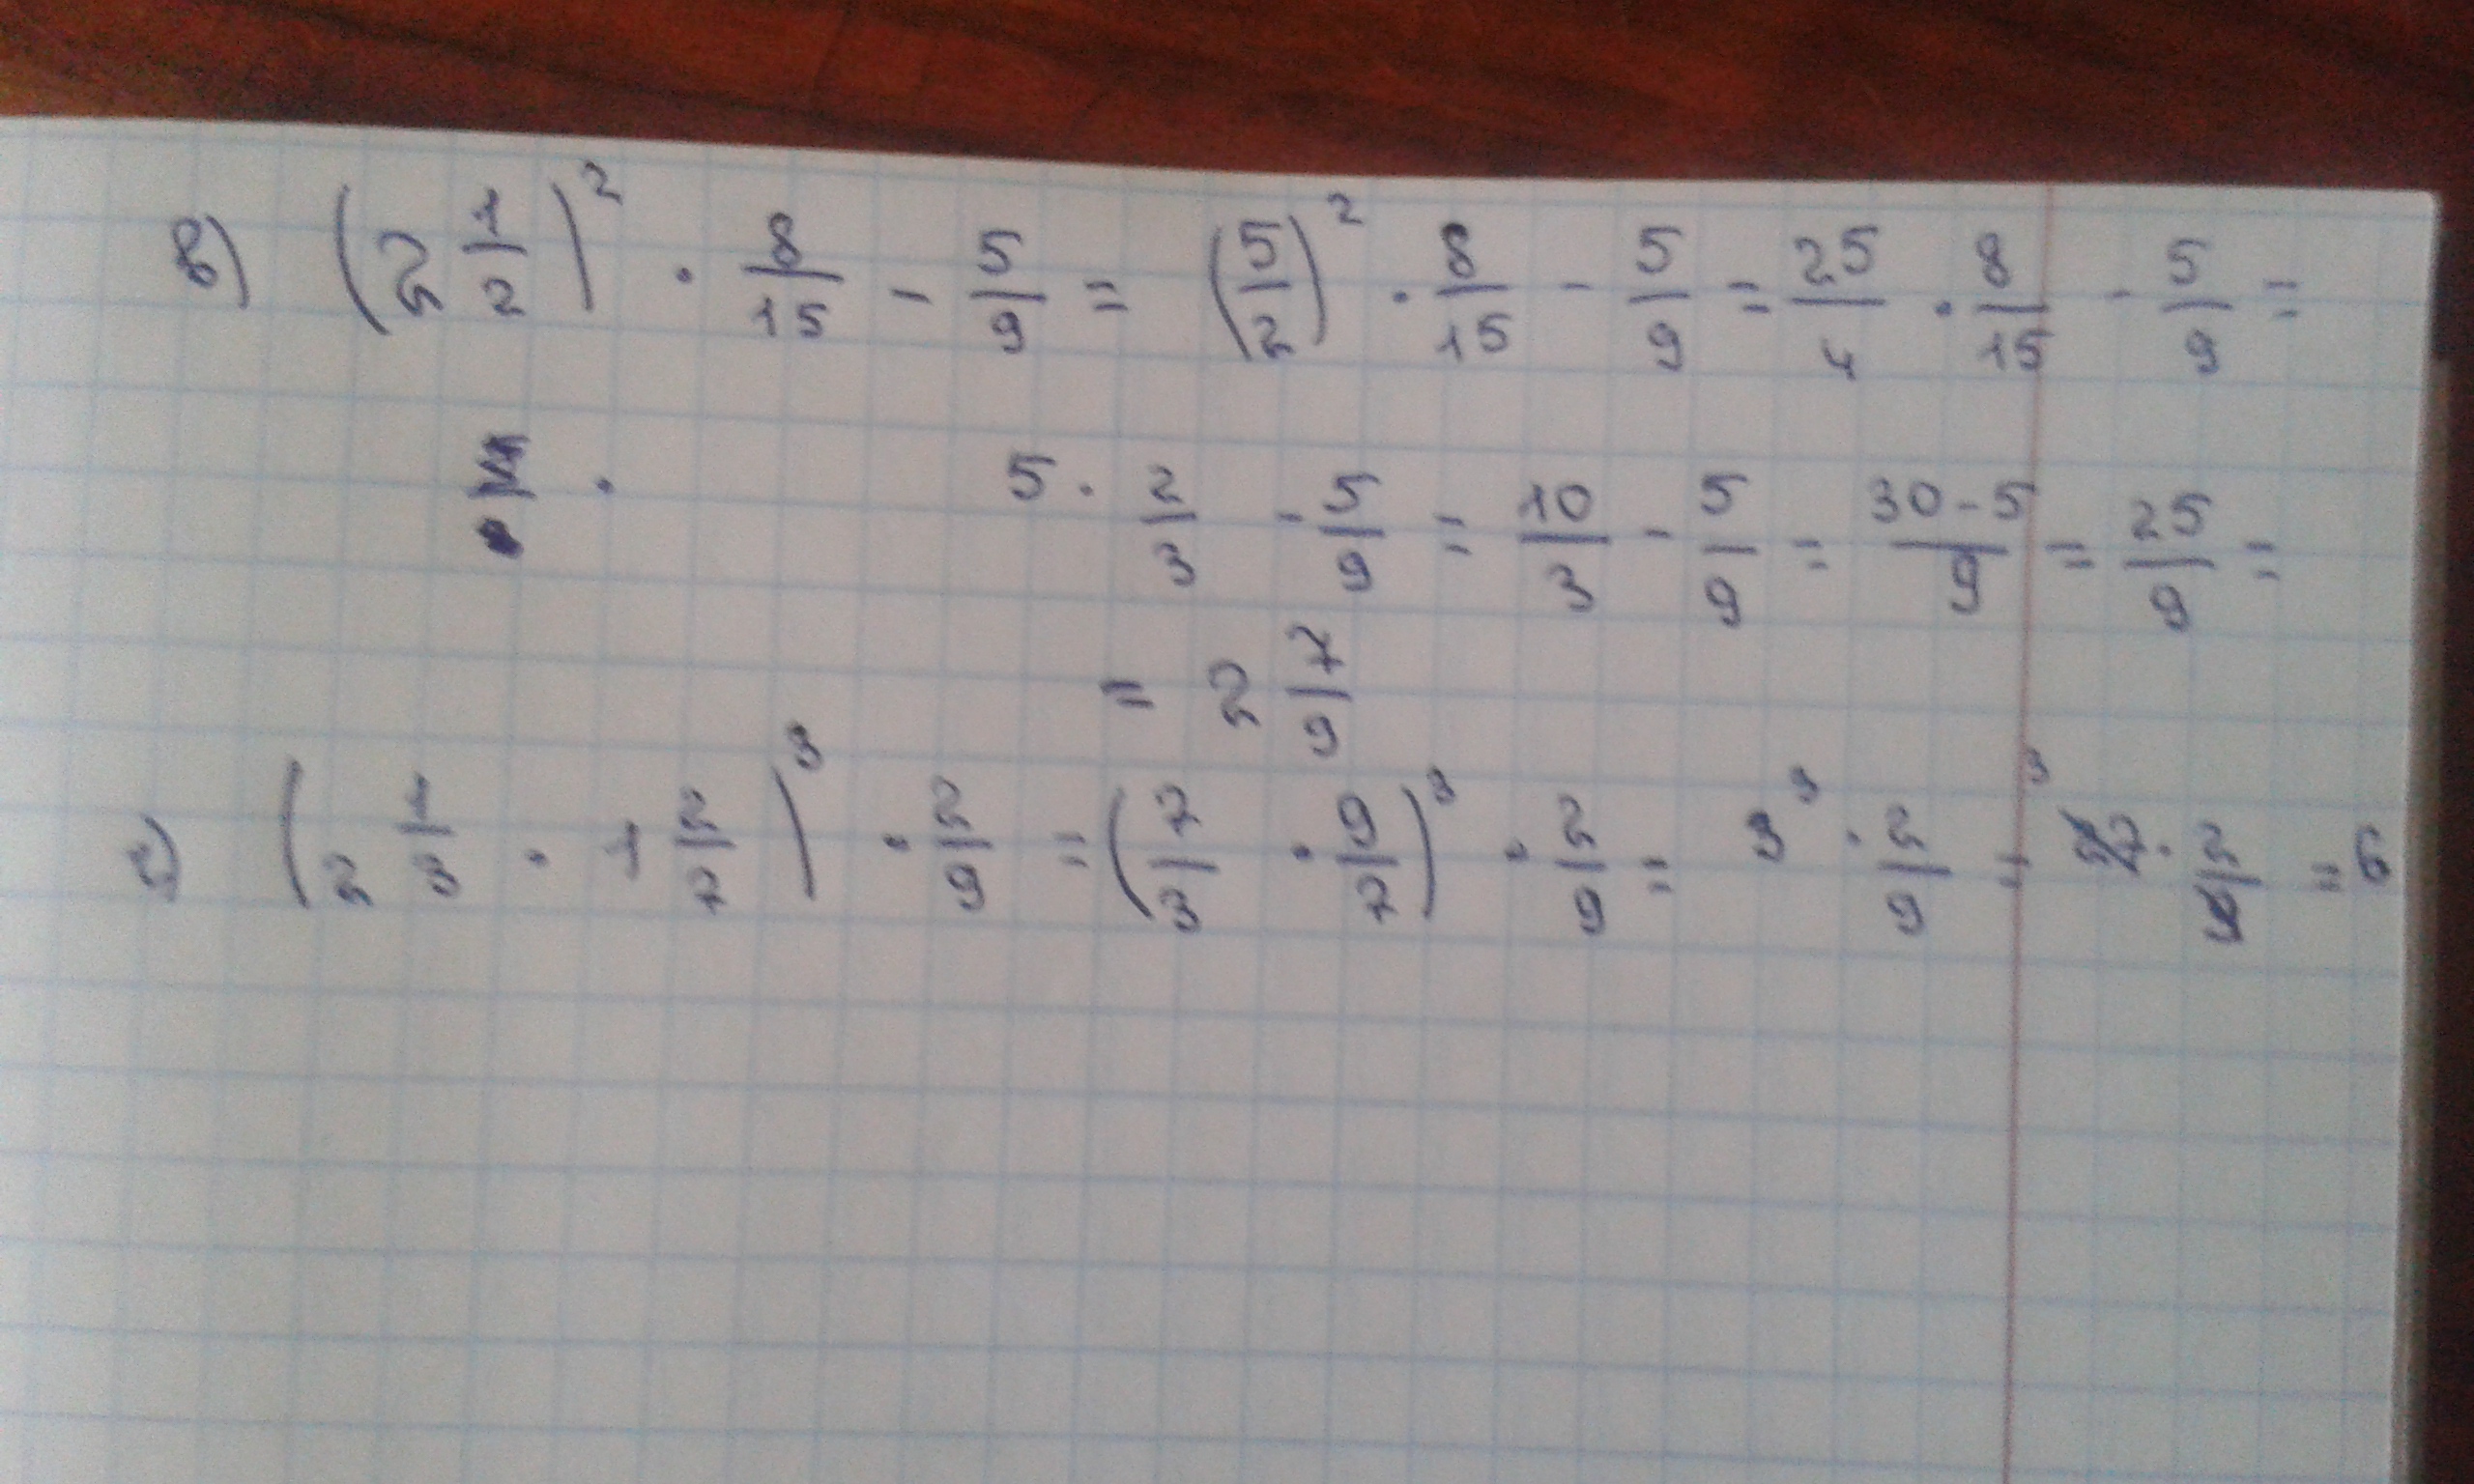 в) (2 1/2)² · 8/15 - 5/9 = (5/2)² · 8/15 - 5/9 = 25/4 · 8/15 - 5/9 =
· 5 · 2/3 - 5/9 = 10/3 - 5/9 = (30-5)/9 = 25/9 =
= 2 7/9
г) (2 1/3 · 1 2/7)³ · 2/9 = (7/3 · 9/7)³ · 2/9 = 3³ · 2/9 = ³27 · 2/9 = 6